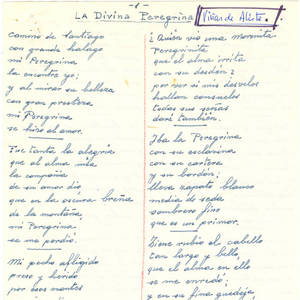 -1-
LA Divina Peregrina
Viñas de Aliste.
Camino de Santiago
con grande halago
mi Peregrina
la encontre yo;
y al mirar su belleza
con gran presteza
mi Peregrina
se hizo al amor.
Fue tanta la alegria
que al alma mia
la compañia
de su amor dio,
que en la oscura breña
de la montaña,
mi Peregrina,
se me perdio.
Mi pecho afligido
preso y herido
por esos montes
¿Quien vio una morenita
Peregrinita
que el alma irrita
con su desdén?
por ver si mis desvelos
hallan consuelos
todas sus señas
daré tambien.
Iba la Peregrina
con su esclavina
con su cartera
y su bordón;
lleva zapato blanco
media de seda
sombrero fino
que es un primor.
Tiene rubio el cabello
tan largo y bello
que el alma en ello
se me enredó;
y en su fina guedeja